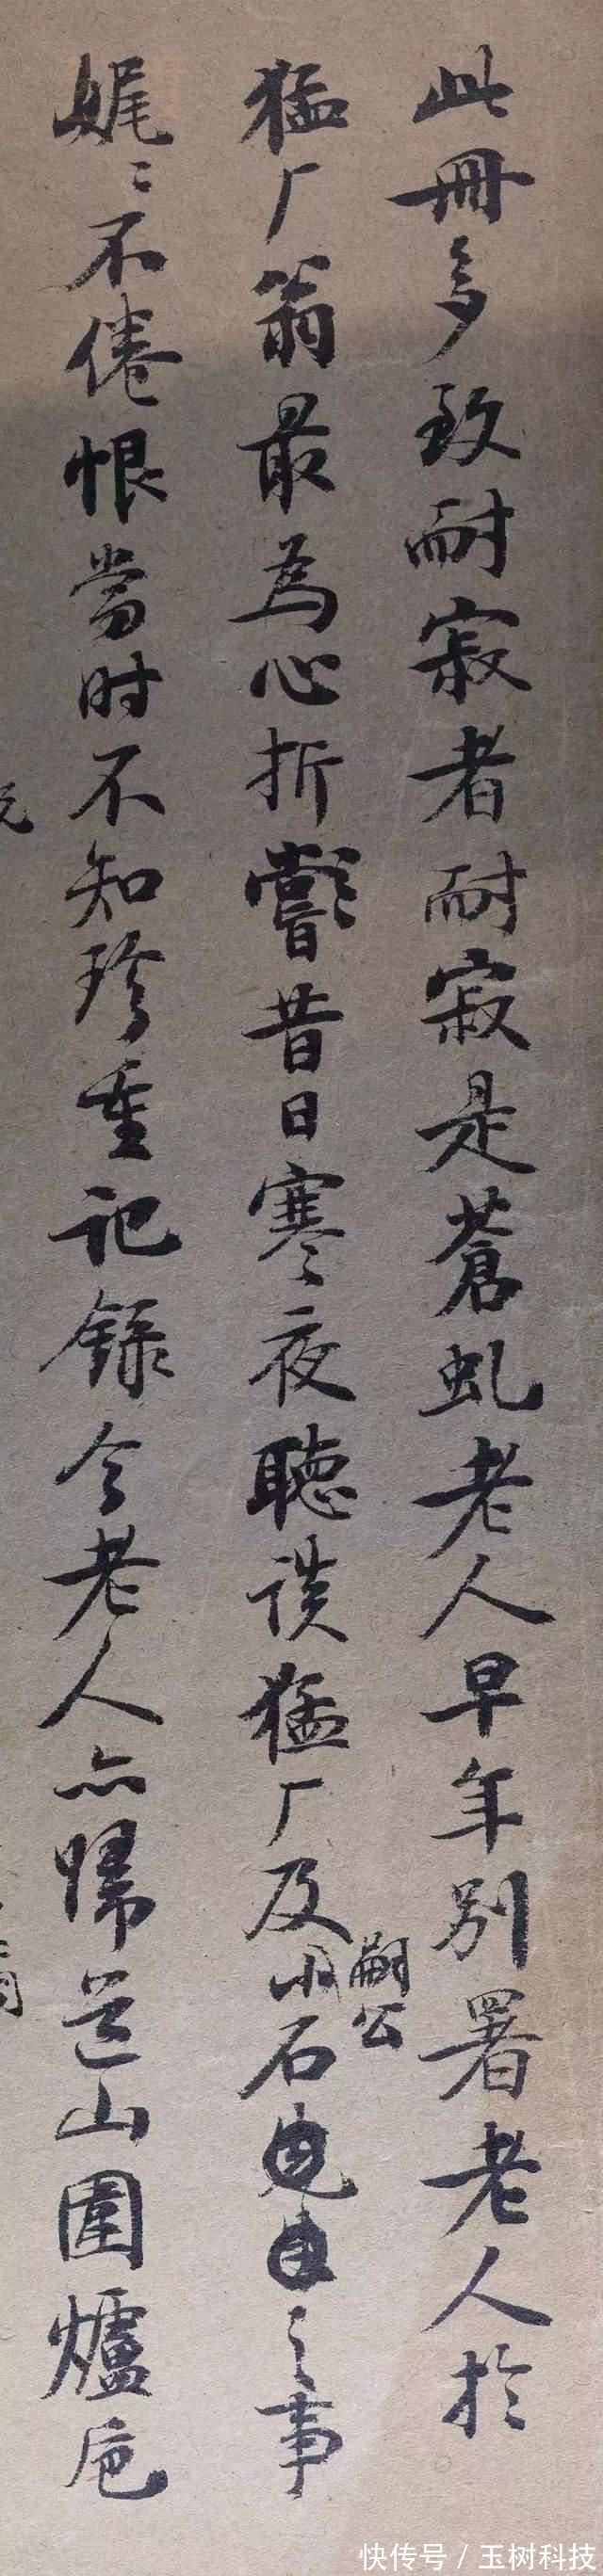 此冊多致耐寂者耐寂是蒼虬老人早年別署老人於
猛厂翁最為心折嘗昔日寒夜聽談猛厂及石之事
嗣公
娓〻不倦恨當时不知珍重記録今老人亦歸道山圍爐
快传号 / 玉树科技